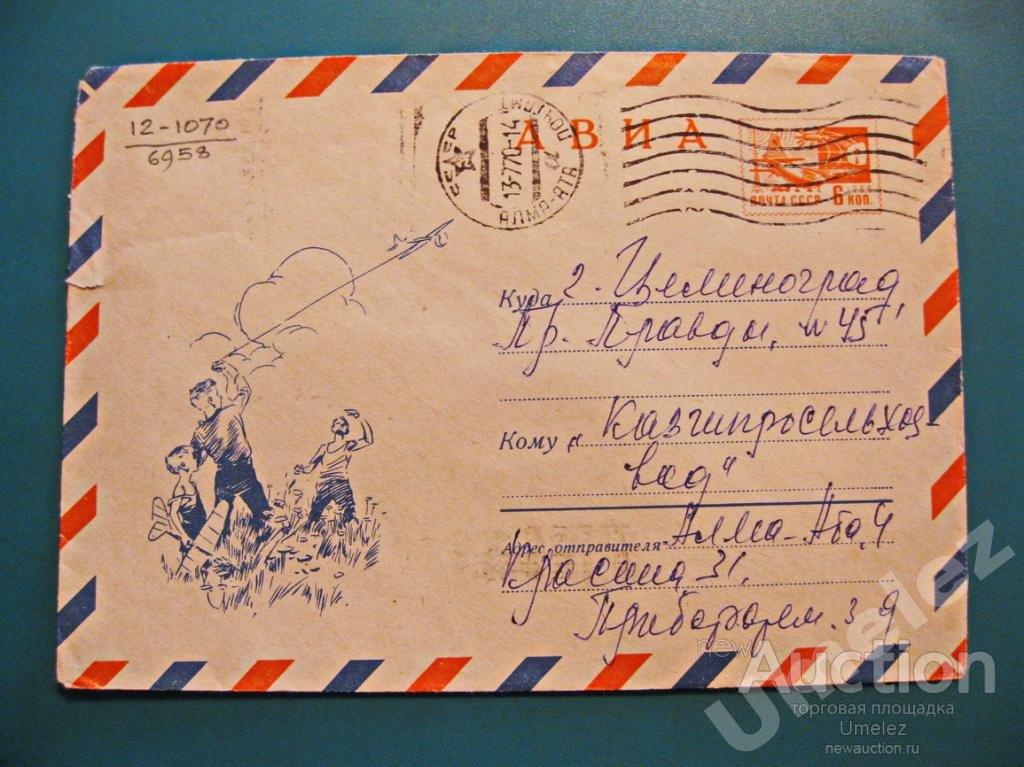 12-1070
6958
СССР
13-7 70-14
АЛМА-АТА
ПОЧТАМТ
АВИА
ПОЧТА СССР 6 КОП.
Куда г. Целиноград,
Пр. Правды, № 45
Кому „Казгипросельхоз-
вод"
Адрес отправителя Алма-Ата, 4
Красина 31,
new
Auction
торговая площадка
Umelez
newauction.ru
Umelez